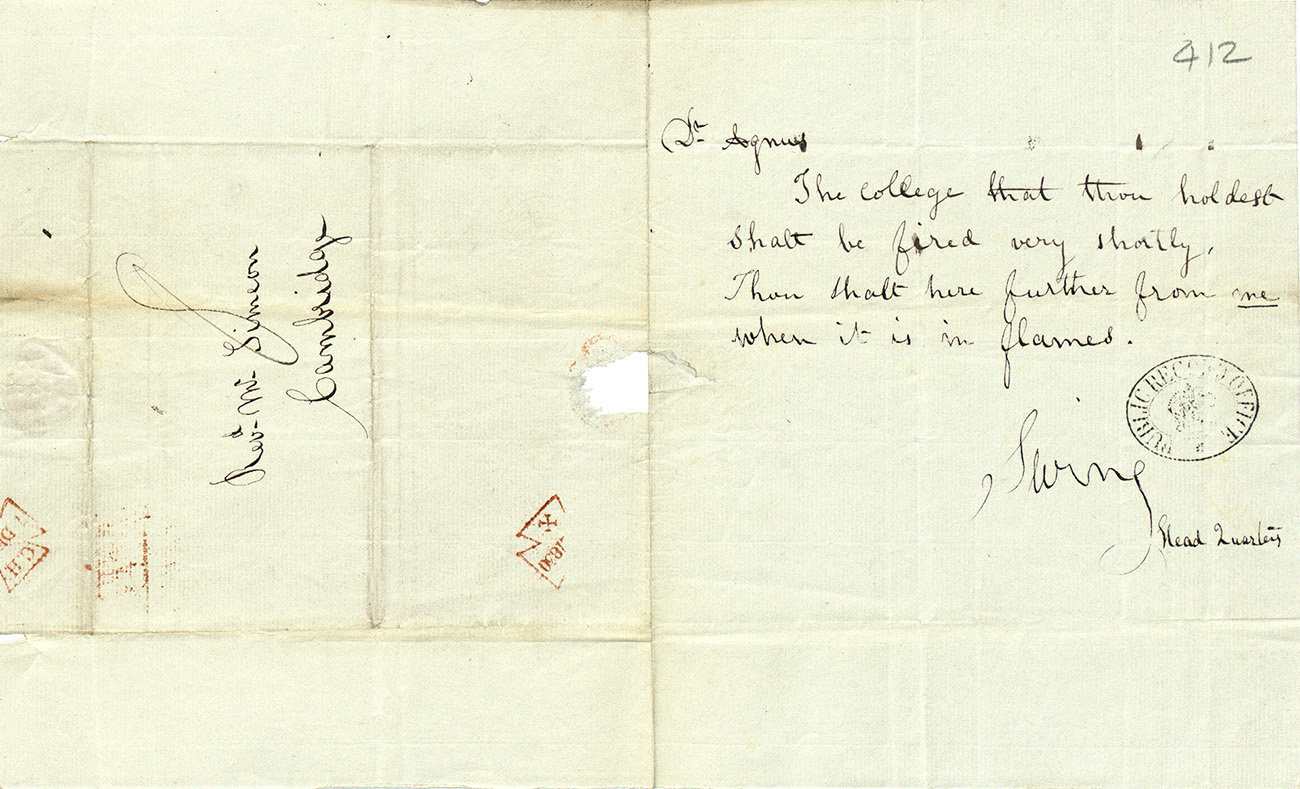 412
Dr. Agnus
The college that thou holdest
shalt be fired very shortly,
Thou shalt here further from me
when it is in flames.
Swing
Head Quarters
PUBLIC RECORD OFFICE
Revd. Mr. Simeon
Cambridge
1830